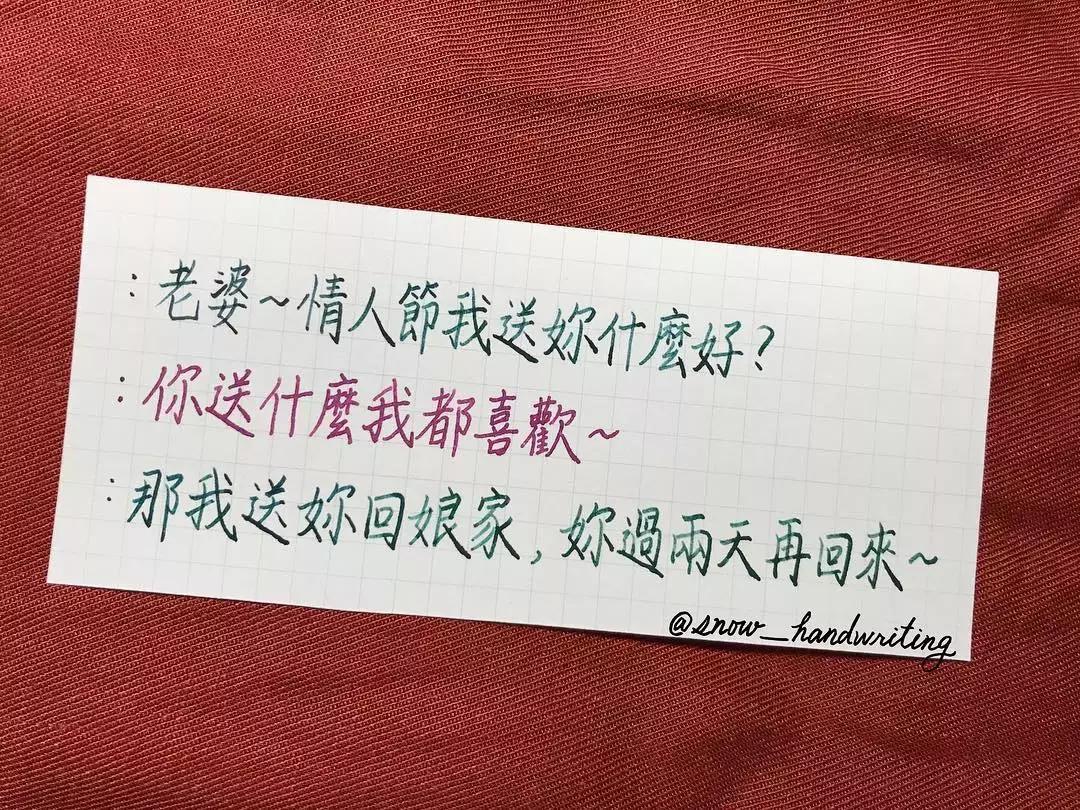 ：老婆～情人節我送妳什麼好？
：你送什麼我都喜歡～
：那我送妳回娘家，妳過兩天再回來～
@snow_handwriting